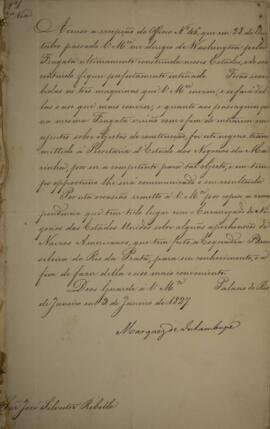 Nº 1
Accuso a recepção do Officio Nº 46, que em 28 de Ou-
tubro passado V. Mce me dirigio de Washington pela
Fragata ultimamente construida nesses Estados, e do seu
conteudo fiquei perfeitamente inteirado. Forão rece-
bidas as tres maquinas que V. Mce enviou, e se fará d'el-
las o uso que mais convier; e quanto aos
na mesma Fragata vierão com o fim de entrarem em
ajustes sobre objectos de construcção, foi este negocio trans-
mittido á Secretaria d'Estado dos Negocios da Ma-
rinha, por ser a competente para tal objecto, e em tem-
po opportuno lhe será communicado o seu resultado.
Por esta occasião remetto a V. Mce por copia a corres-
pondencia que tem tido lugar com o Encarregado de Ne-
gocios dos Estados Unidos sobre algumas aprehensões de
Navios Americanos, que tem feito a Esquadra Bra-
sileira do Rio da Prata, para seu conhecimento, e a
fim de fazer della o uso mais conveniente.
Deos Guarde a V. Mce Palacio do Rio
de Janeiro em 3 de Janeiro de 1827
Marquez de Inhambupe
Snr José Silvestre Rebello